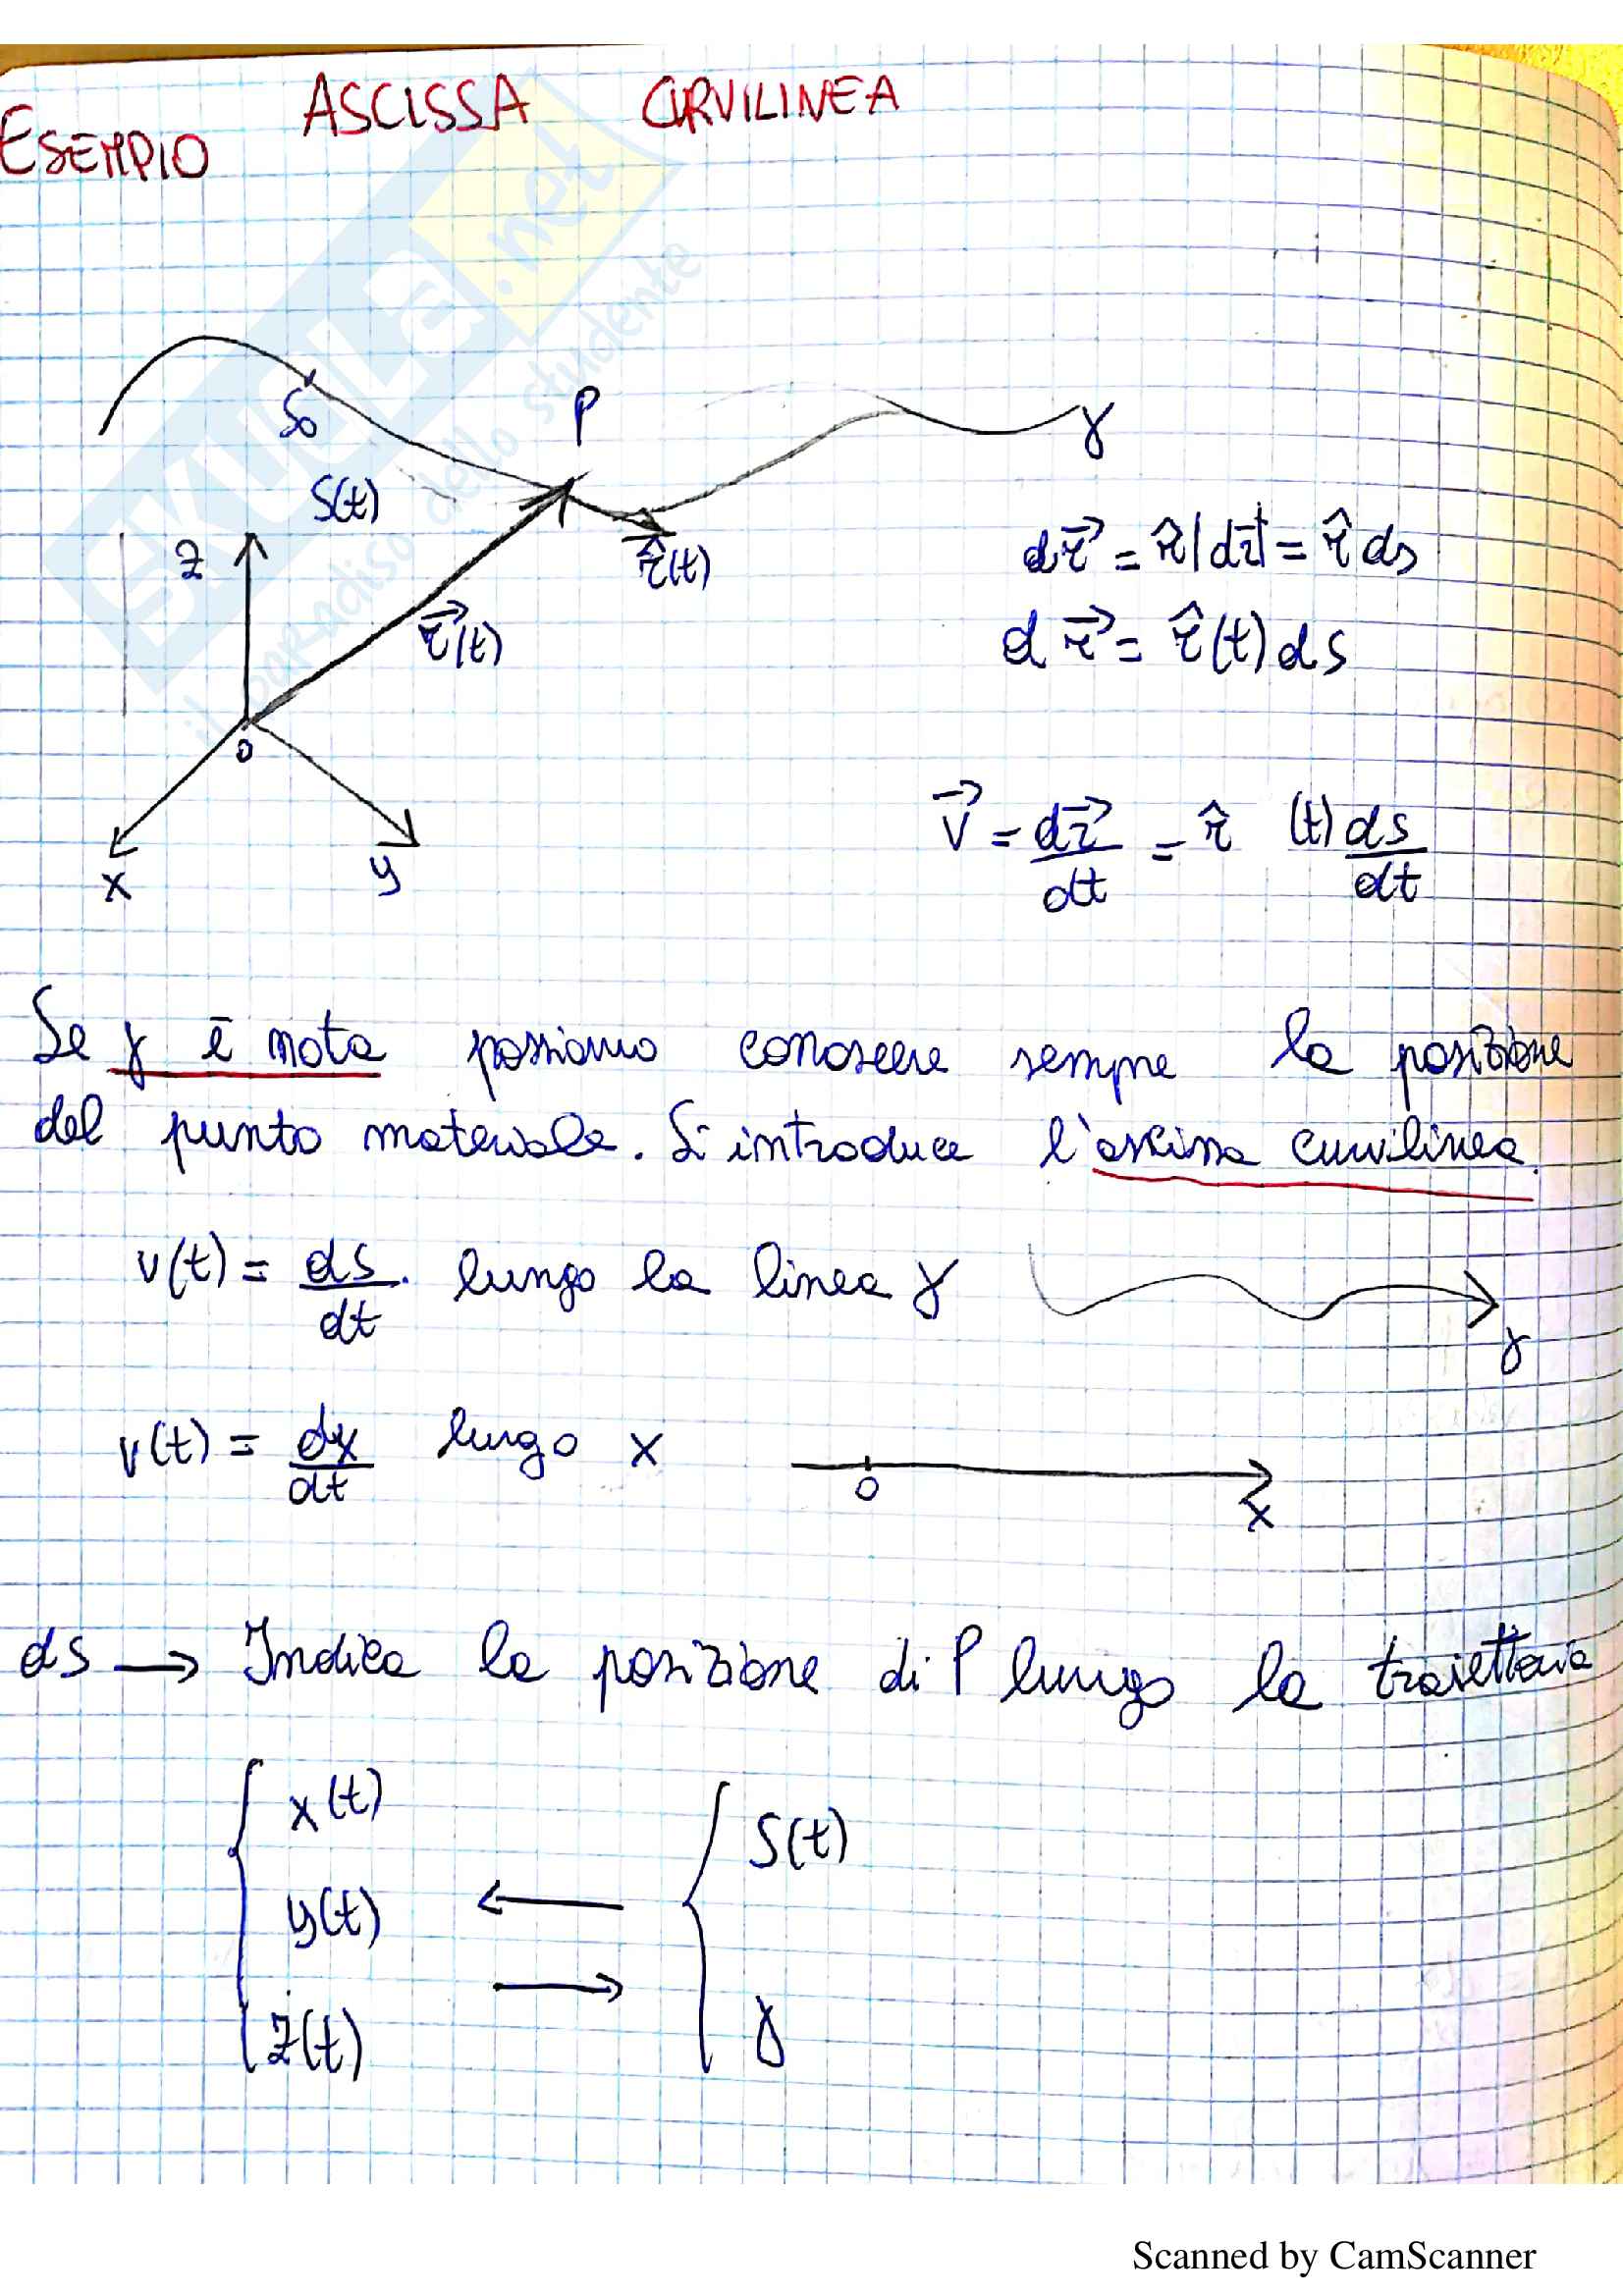 ESEMPIO ASCISSA CURVILINEA
SKUOLA.net
il paradiso dello studente
S₀
P
γ
S(t)
z
r̂(t)
r⃗(t)
dr⃗ = r̂|dr⃗| = r̂ds
dr⃗ = r̂(t)ds
0
x
y
v⃗ = dr⃗/dt = r̂ (t)ds/dt
Se γ è nota possiamo conoscere sempre la posizione
del punto materiale. Si introduce l'ascissa curvilinea.
v(t) = ds/dt. lungo la linea γ
γ
v(t) = dx/dt lungo x
0
x
ds → Indica la posizione di P lungo la traiettoria
x(t)
S(t)
y(t) ←
→
z(t)
γ
Scanned by CamScanner